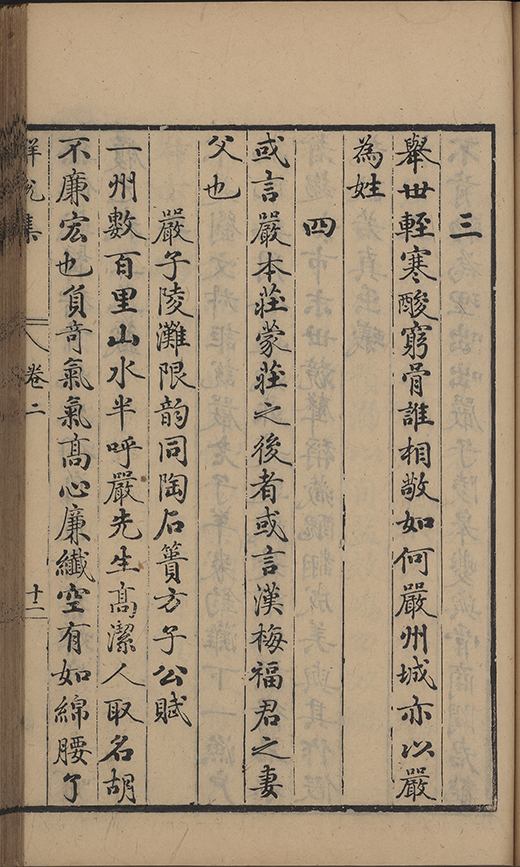 三
舉世輕寒酸窮骨誰相敬如何嚴州城亦以嚴
為姓
四
或言嚴本莊蒙莊之後者或言漢梅福君之妻
父也
嚴子陵灘限韵同陶石簣方子公賦
一州數百里山水半呼嚴先生髙潔人取名胡
不廉宏也負奇氣氣髙心廉纖空有如綿腰了
集
卷二
十二